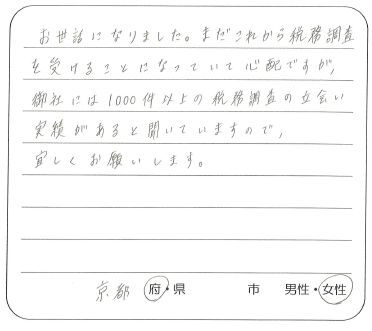 お世話になりました。まだこれから税務調査
を受けることになっていて心配ですが、
御社には1000件以上の税務調査の立会い
実績があると聞いていますので、
宜しくお願いします。
京都 府・県 市 男性・女性